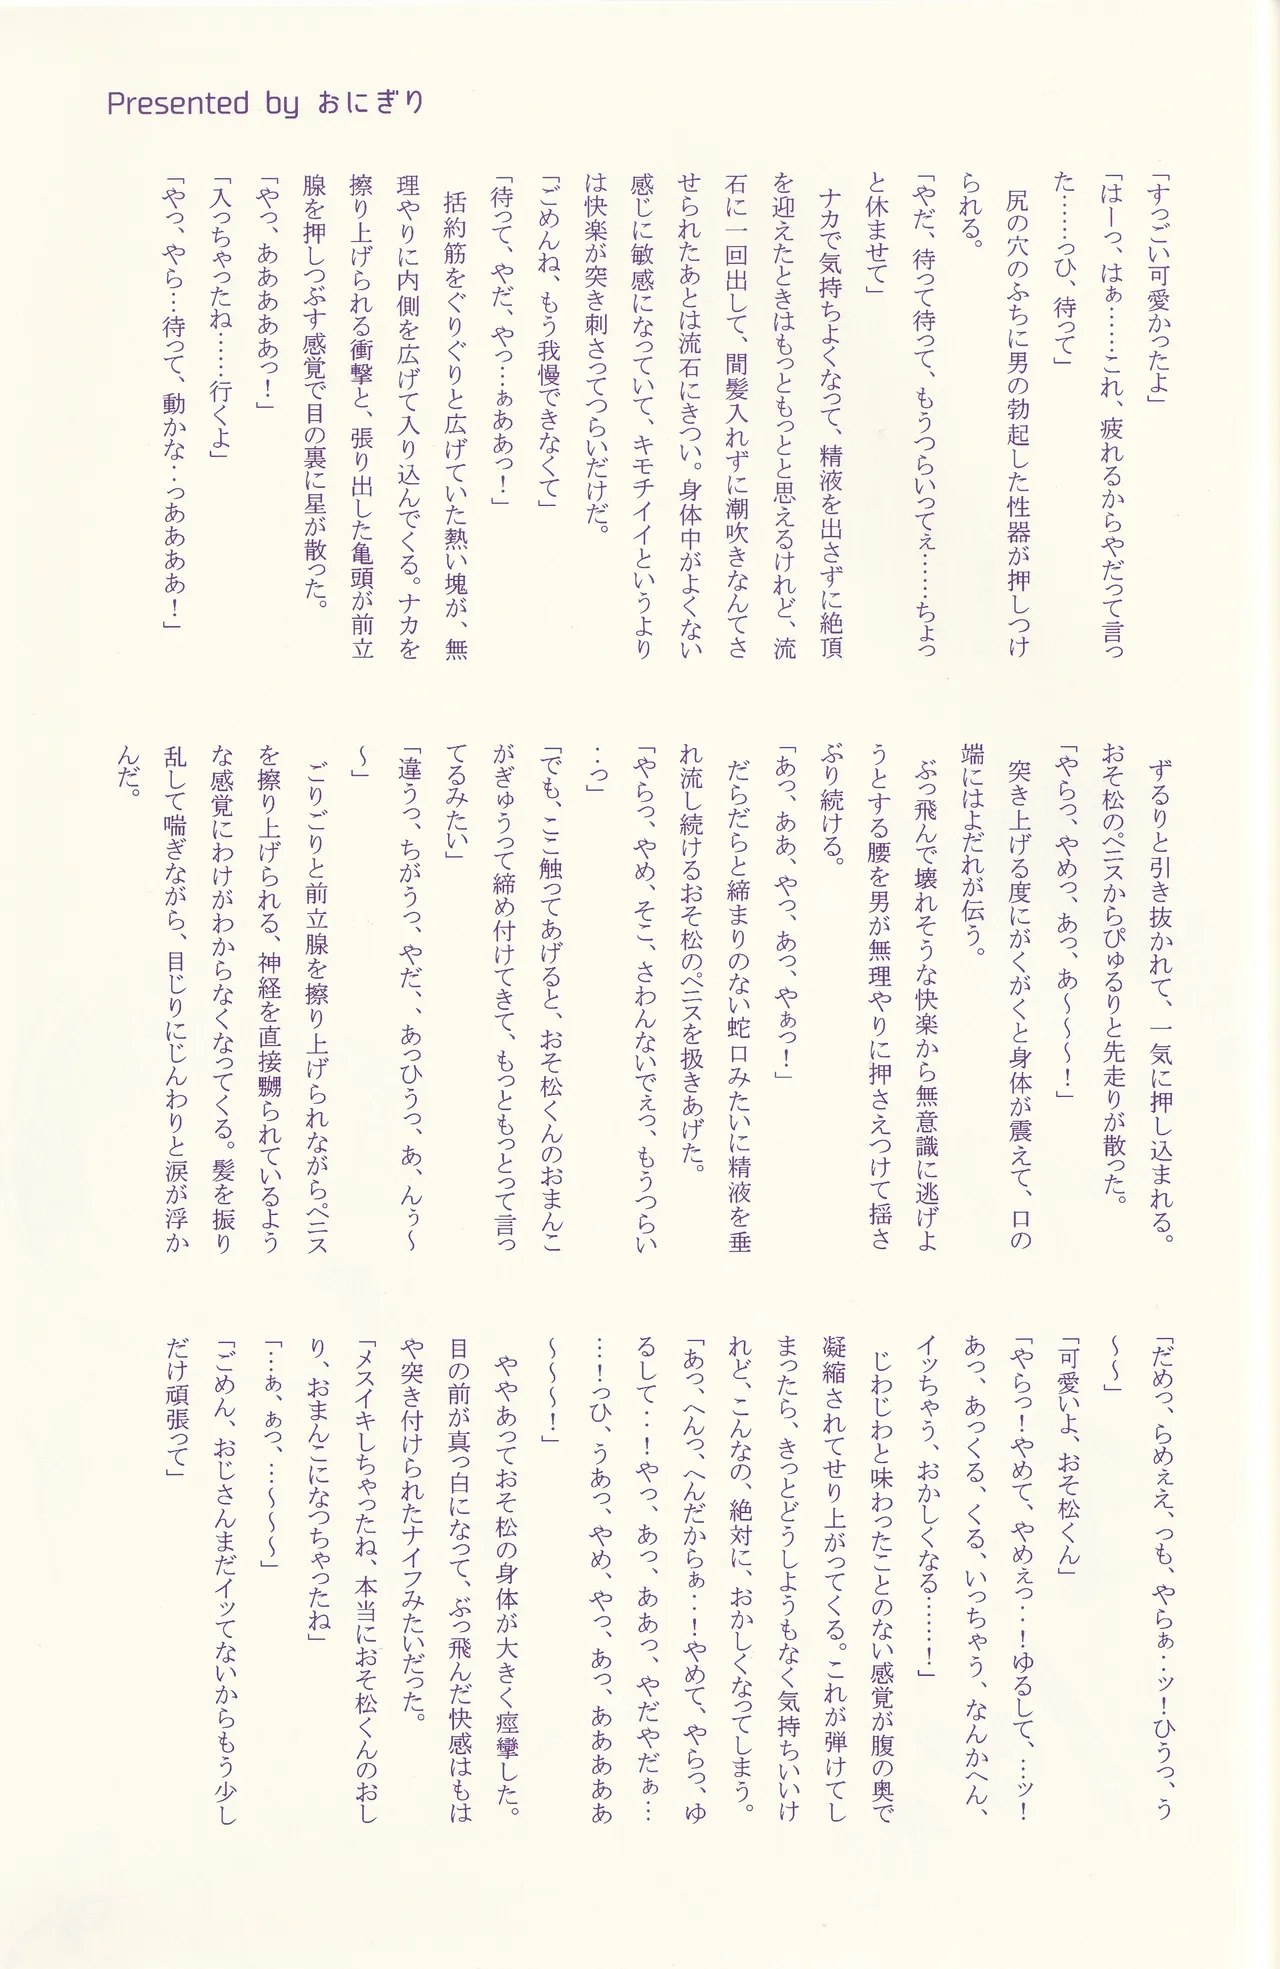 Presented by おにぎり
「すっごい可愛かったよ」
「はーっ、はぁ……これ、疲れるからやだって言っ
た……っひ、待って」
　尻の穴のふちに男の勃起した性器が押しつけ
られる。
「やだ、待って待って、もうつらいってぇ……ちょっ
と休ませて」
　ナカで気持ちよくなって、精液を出さずに絶頂
を迎えたときはもっともっとと思えるけれど、流
石に一回出して、間髪入れずに潮吹きなんてさ
せられたあとは流石にきつい。身体中がよくない
感じに敏感になっていて、キモチイイというより
は快楽が突き刺さってつらいだけだ。
「ごめんね、もう我慢できなくて」
「待って、やだ、やっ…ぁああっ！」
　括約筋をぐりぐりと広げていた熱い塊が、無
理やりに内側を広げて入り込んでくる。ナカを
擦り上げられる衝撃と、張り出した亀頭が前立
腺を押しつぶす感覚で目の裏に星が散った。
「やっ、あああああっ！」
「入っちゃったね……行くよ」
「やっ、やら…待って、動かな‥っああああ！」
　ずるりと引き抜かれて、一気に押し込まれる。
おそ松のペニスからぴゅるりと先走りが散った。
「やらっ、やめっ、あっ、あ～～～！」
　突き上げる度にがくがくと身体が震えて、口の
端にはよだれが伝う。
　ぶっ飛んで壊れそうな快楽から無意識に逃げよ
うとする腰を男が無理やりに押さえつけて揺さ
ぶり続ける。
「あっ、ああ、やっ、あっ、やぁっ！」
　だらだらと締まりのない蛇口みたいに精液を垂
れ流し続けるおそ松のペニスを扱きあげた。
「やらっ、やめ、そこ、さわんないでぇっ、もうつらい
‥っ」
「でも、ここ触ってあげると、おそ松くんのおまんこ
がぎゅうって締め付けてきて、もっともっとって言っ
てるみたい」
「違うっ、ちがうっ、やだ、、あっひうっ、あ、んぅ～
～」
　ごりごりと前立腺を擦り上げられながらペニス
を擦り上げられる、神経を直接嬲られているよう
な感覚にわけがわからなくなってくる。髪を振り
乱して喘ぎながら、目じりにじんわりと涙が浮か
んだ。
「だめっ、らめぇえ、っも、やらぁ‥ッ！ひうっ、う
～～」
「可愛いよ、おそ松くん」
「やらっ！やめて、やめぇっ…！ゆるして、…ッ！
あっ、あっくる、くる、いっちゃう、なんかへん、
イッちゃう、おかしくなる……！」
　じわじわと味わったことのない感覚が腹の奥で
凝縮されてせり上がってくる。これが弾けてし
まったら、きっとどうしようもなく気持ちいいけ
れど、こんなの、絶対に、おかしくなってしまう。
「あっ、へんっ、へんだからぁ…！やめて、やらっ、ゆ
るして…！やっ、あっ、ああっ、やだやだぁ…
…！っひ、うあっ、やめ、やっ、あっ、あああああ
～～～！」
　ややあっておそ松の身体が大きく痙攣した。
目の前が真っ白になって、ぶっ飛んだ快感はもは
や突き付けられたナイフみたいだった。
「メスイキしちゃったね、本当におそ松くんのおし
り、おまんこになっちゃったね」
「…ぁ、ぁっ、…～～～」
「ごめん、おじさんまだイッてないからもう少し
だけ頑張って」